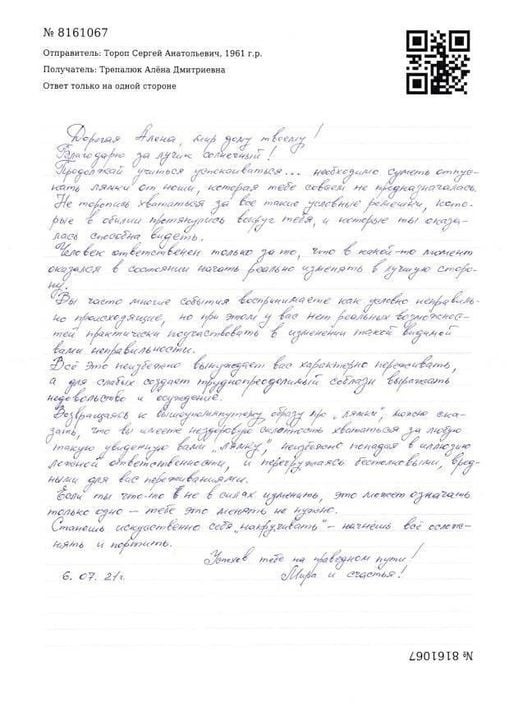 № 8161067
Отправитель: Тороп Сергей Анатольевич, 1961 г.р.
Получатель: Трепалюк Алёна Дмитриевна
Ответ только на одной стороне
Дорогая Алена, мир дому твоему!
Благодарю за лучик солнечный!
Продолжай учиться успокаиваться... необходимо суметь отпус-
кать лямки от ноши, которая тебе совсем не предназначалась.
Не торопись хвататься за все такие условные ремешки, кото-
рые в обилии протянулись вокруг тебя, и которые ты оказа-
лась способна видеть.
Человек ответственен только за то, что в какой-то момент
оказался в состоянии начать реально изменять в лучшую сторо-
ну.
Вы часто многие события воспринимаете как условно неправиль-
но происходящие, но при этом у вас нет реальных возможнос-
тей практически поучаствовать в изменении такой видимой
вами неправильности.
Всё это неизбежно вынуждает вас характерно переживать,
а для слабых создает труднопреодолимый соблазн выражать
недовольство и осуждение.
Возвращаясь к вышеупомянутому образу про „лямки", можно ска-
зать, что вы имеете нездоровую склонность хвататься за любую
такую увиденную вами „лямку", неизбежно попадая в иллюзию
ложной ответственности, и перегружаясь бестолковыми, вред-
ными для вас переживаниями.
Если ты что-то в не в силах изменить, это может означать
только одно – тебе это менять не нужно.
Станешь искуственно себя „накручивать" – начнёшь всё ослож-
нять и портить.
Успехов тебе на праведном пути!
6.07.21г. Мира и счастья!
№ 8161067